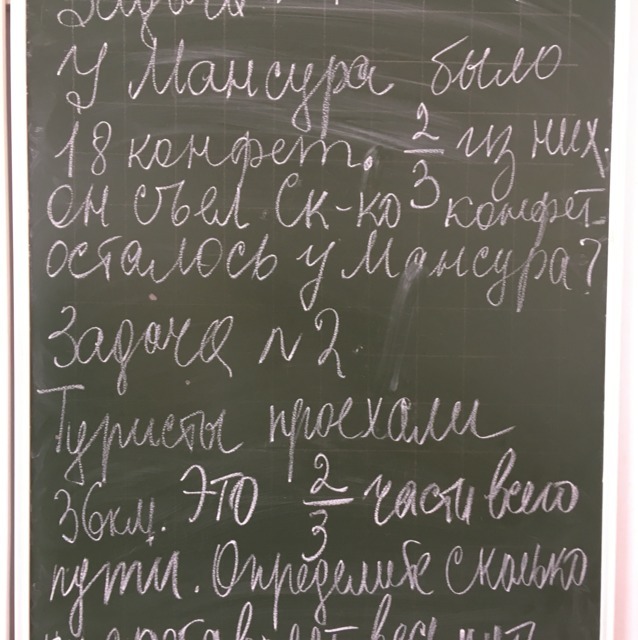 Задача
У Мансура было
18 конфет. 2/3 из них
он съел Ск-ко конфет
осталось у Мансура?
Задача N2
Туристы проехали
36км. Это 2/3 части всего
пути. Определите сколько